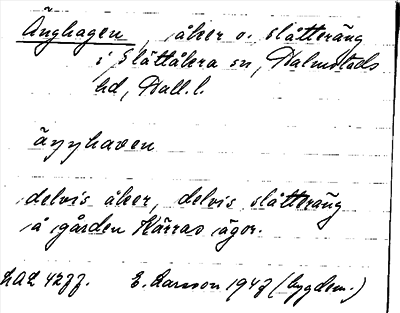 Änghagen, åker o. slåtteräng
i Slättåkra sn, Halmstads
hd, Hall. l.
äŋŋhaven
delvis åker, delvis slåtteräng
å gården Kärras ägor.
LAL 4277.    E. Larsson 1947 (bygdem.)